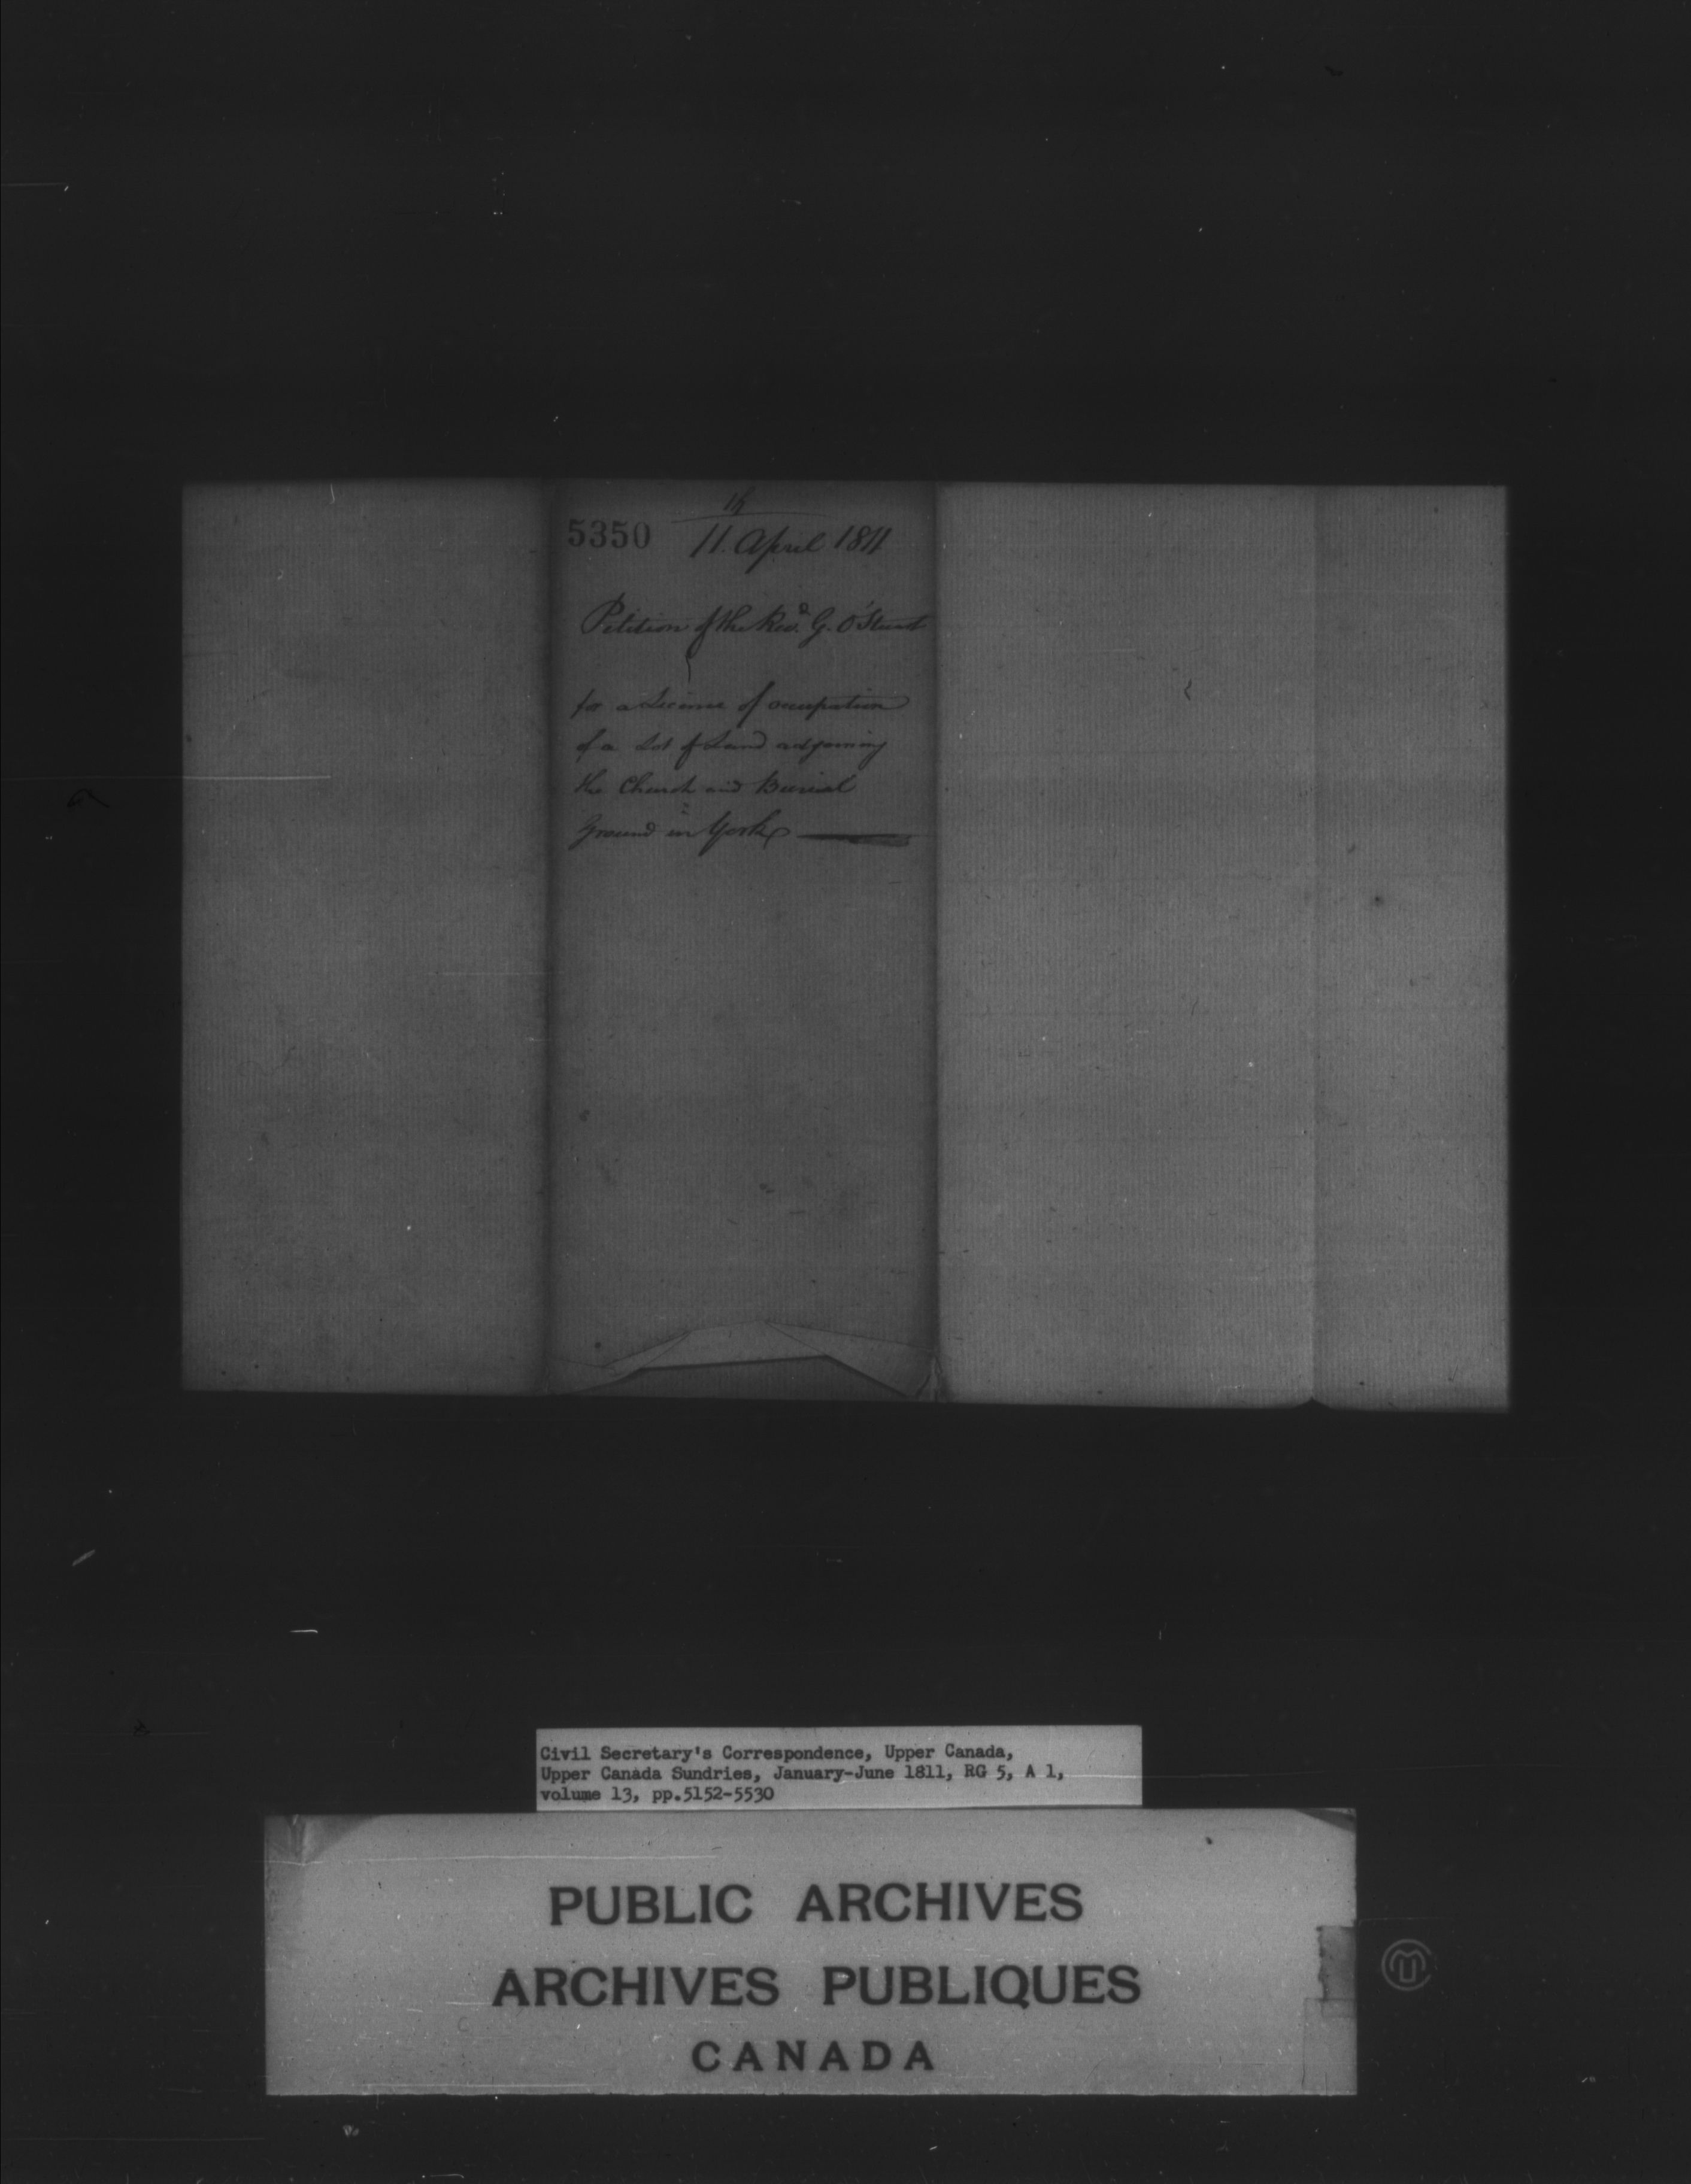 5350
11. April 1811
Petition of the Revd. G. O'Stuart
for a License of occupation
of a Lot of Land adjoining
the Church and Burial
Ground in York
Civil Secretary's Correspondence, Upper Canada,
Upper Canada Sundries, January-June 1811, RG 5, A 1,
volume 13, pp.5152-5530
PUBLIC ARCHIVES
ARCHIVES PUBLIQUES
CANADA